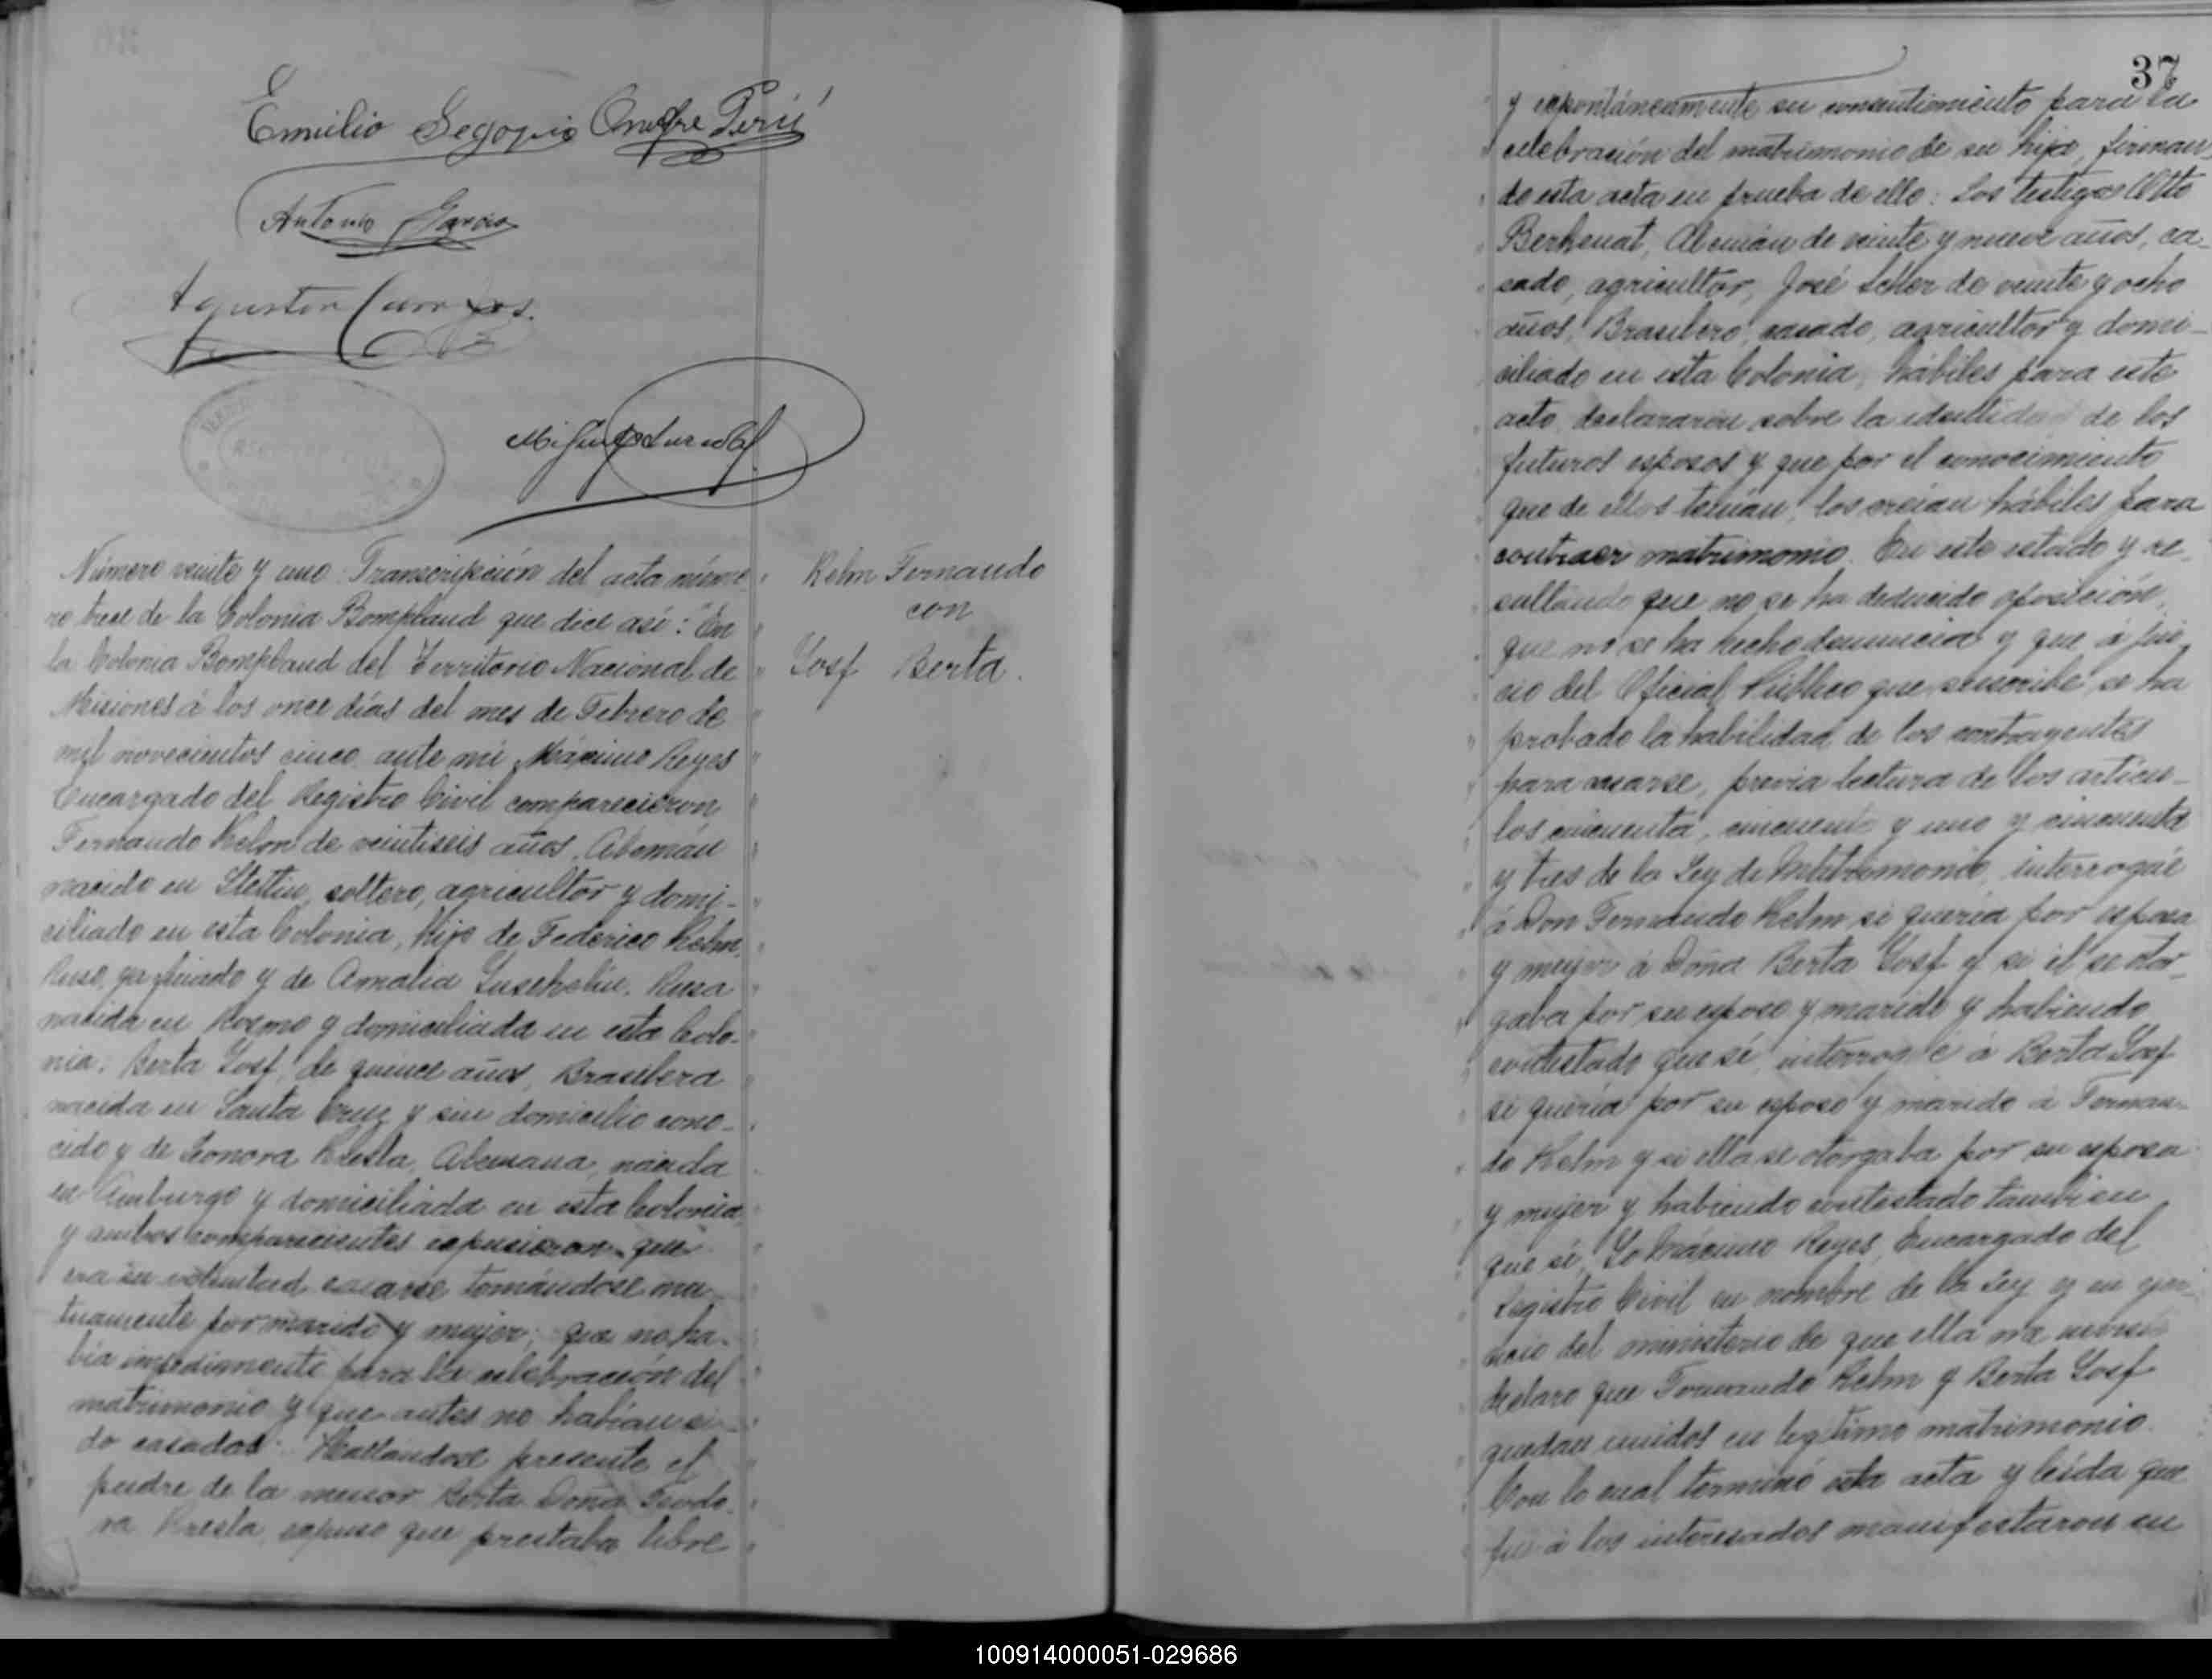 Emilio Segovia Onofre Perié
Antonio Garcia
Agustin Campos.
Número veinte y uno. Transcripción del acta núme-
ro trece de la Colonia Bompland que dice asi: "En
la Colonia Bompland del Territorio Nacional de
Misiones á los once días del mes de Febrero de
mil novecientos cinco ante mi Máximo Reyes
Encargado del Registro Civil comparecieron,
Fernando Kelm de veintiseis años, Aleman
nacido en Stettin, soltero, agricultor y domi-
ciliado en esta Colonia, hijo de Federico Kelm,
Ruso, ya finado y de Amalia Luschelin. Rusa
nacida en Kosmo y domiciliada en esta Colo-
nia; Berta Yosf, de quince años, Brasilera
nacida en Santa Cruz y sin domicilio cono-
cido y de Leonora Kresla, Alemana, nacida
en Amburgo y domiciliada en esta Colonia,
y ambos comparecientes espusieron que
era su voluntad casarse tomándose mu-
tuamente por marido y mujer; que no ha-
bia impedimento para la celebración del
matrimonio y que antes no habian si-
do casados. Hallandose presente el
padre de la menor Berta Doña Teodo-
ra Kresla, espuso que prestaba libre
Kelm Fernando
con
Yosf Berta.
37
y espontáneamente su consentimiento para la
celebración del matrimonio de su hija, firman
do esta acta en prueba de ello: Los testigos Otto
Berhenat, Alemán de veinte y nueve años, ca-
sado, agricultor, José Scher de veinte y ocho
años, Brasilero, casado, agricultor y domi-
ciliado en esta Colonia, hábiles para este
acto, declararon sobre la identidad de los
futuros esposos y que por el conocimiento
que de ellos tenían, los creían hábiles para
contraer matrimonio. En este estado y re-
sultando que no se ha deducido oposición,
que no se ha hecho denuncia y que á jui-
cio del Oficial Público que suscribe, se ha
probado la habilidad de los contrayentes
para casarse, previa lectura de los artícu-
los cincuenta, cincuenta y uno y cincuenta
y tres de la Ley de Matrimonio, interrogué
á Don Fernando Kelm si quería por esposa
y mujer á Doña Berta Yosf y si él se otor-
gaba por su esposo y marido y habiendo
contestado que sí, interrogué á Berta Yosf
si quería por su esposo y marido á Fernan-
do Kelm y si ella se otorgaba por su esposa
y mujer y habiendo contestado tambien
que sí, Yo Máximo Reyes, Encargado del
Registro Civil en nombre de la Ley y en ejer-
cicio del ministerio de que ella me
declaro que Fernando Kelm y Berta Yosf
quedan unidos en legítimo matrimonio.
Con lo cual terminó esta acta y leída que
fué á los interesados manifestaron su
100914000051-029686